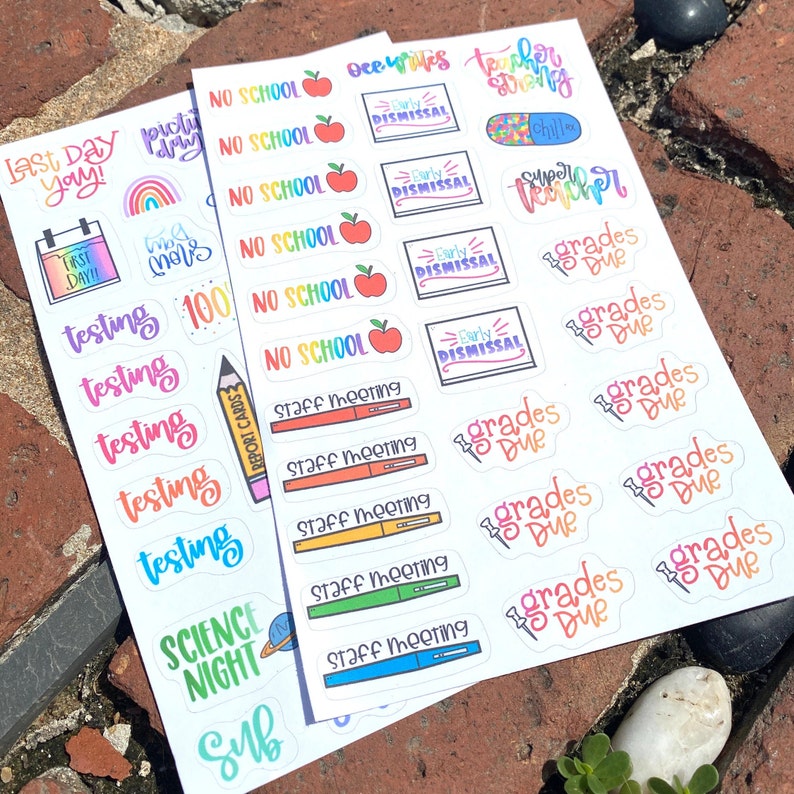 Last Day
Yay!
day!
FIRST
DAY!!
testing
100
testing
testing
testing
testing
REPORT CARDS
SCIENCE
NIGHT
Sub
NO SCHOOL
NO SCHOOL
NO SCHOOL
NO SCHOOL
NO SCHOOL
NO SCHOOL
Staff Meeting
Staff Meeting
Staff Meeting
Staff Meeting
Staff Meeting
writes
Early
DISMISSAL
Early
DISMISSAL
Early
DISMISSAL
Early
DISMISSAL
grades
Due
grades
Due
grades
Due
teacher
strong
chill
super
teacher
grades
Due
grades
Due
grades
Due
grades
Due
grades
Due